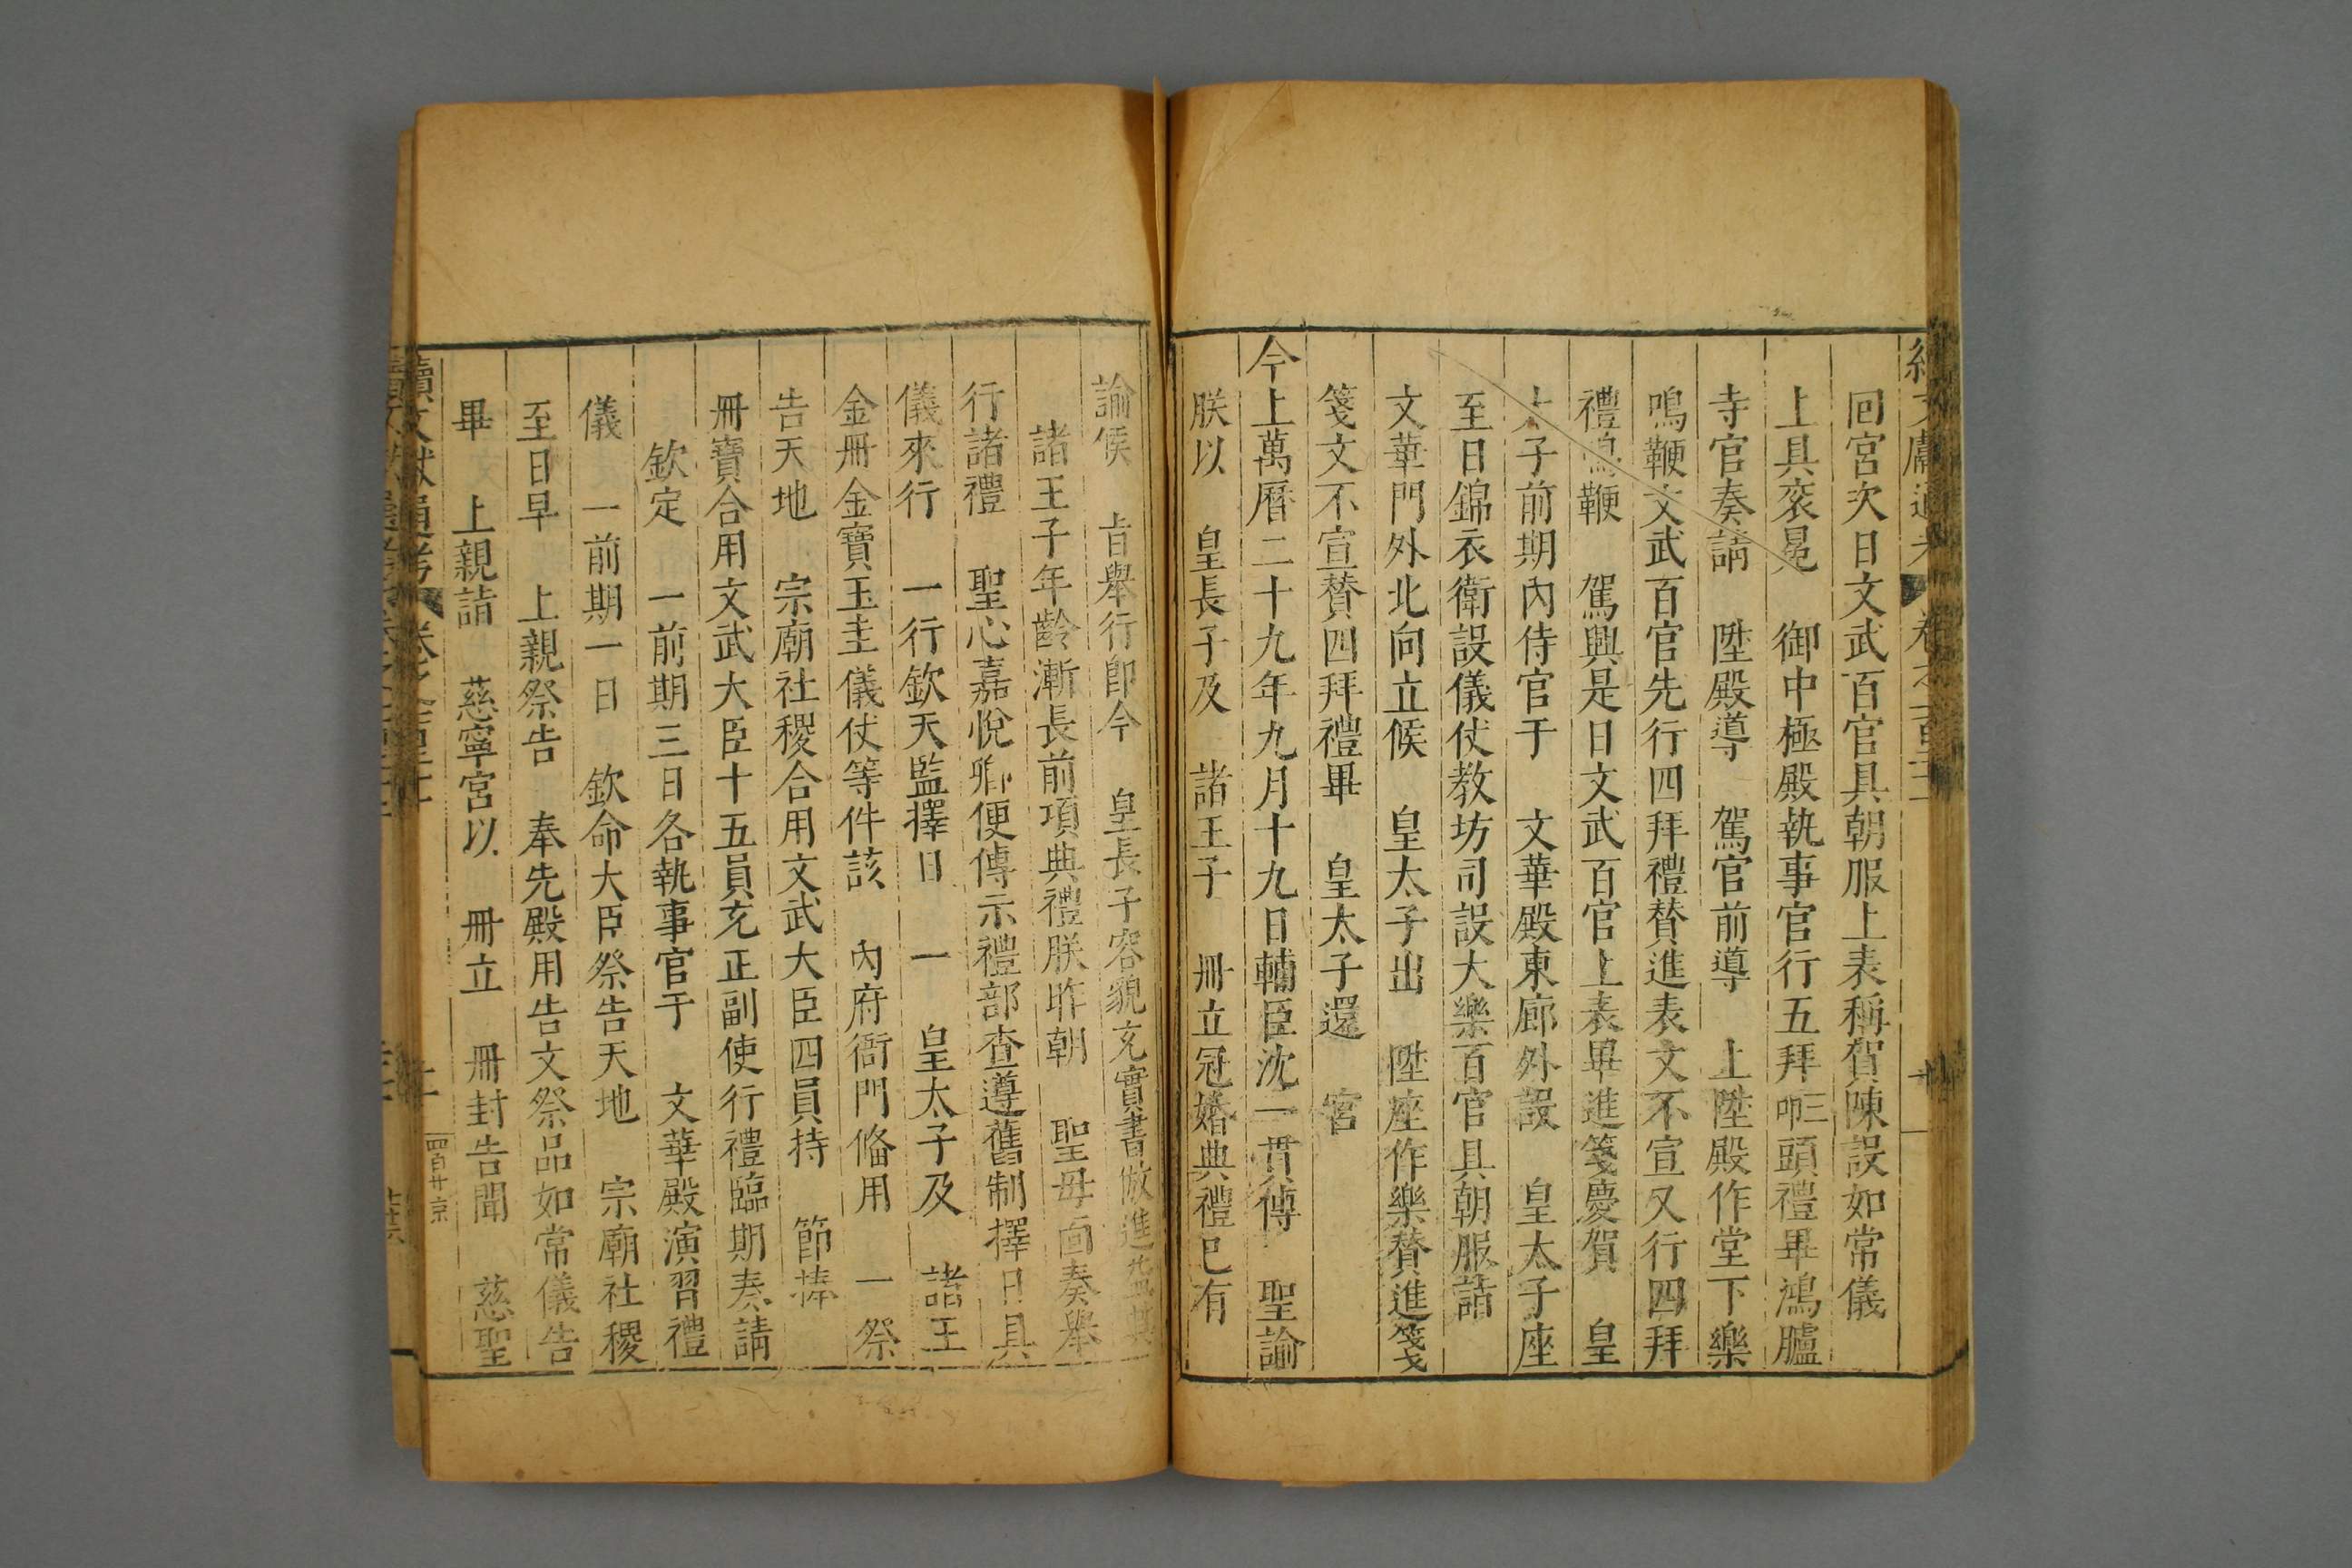 回宮次日文武百官具朝服上表稱賀陳設如常儀
上具袞冕 御中極殿執事官行五拜三叩頭禮畢鴻臚
寺官奏請 陞殿導 駕官前導 上陞殿作堂下樂
鳴鞭文武百官先行四拜禮贊進表文不宣又行四拜
禮鳴鞭 駕興是日文武百官上表畢進箋慶賀 皇
太子前期內侍官于 文華殿東廊外設 皇太子座
至日錦衣衛設儀仗教坊司設大樂百官具朝服詣
文華門外北向立候 皇太子出 陞座作樂贊進箋
箋文不宣贊四拜禮畢 皇太子還 宮
今上萬曆二十九年九月十九日輔臣沈一貫傳 聖諭
朕以 皇長子及 諸王子 冊立冠婚典禮已有
諭候 旨舉行即今 皇長子容貌充實書倣進
諸王子年齡漸長前項典禮朕昨朝 聖母面奏舉
行諸禮 聖心嘉悅卿便傳示禮部查遵舊制擇日具
儀來行 一行欽天監擇日 一 皇太子及 諸王
金冊金寶玉圭儀仗等件該 內府衙門俻用 一祭
告天地 宗廟社稷合用文武大臣四員持 節捧
冊寶合用文武大臣十五員充正副使行禮臨期奏請
欽定 一前期三日各執事官于 文華殿演習禮
儀 一前期一日 欽命大臣祭告天地 宗廟社稷
至日早 上親祭告 奉先殿用告文祭品如常儀告
畢 上親請 慈寧宮以 冊立 冊封告聞 慈聖
續文獻通考